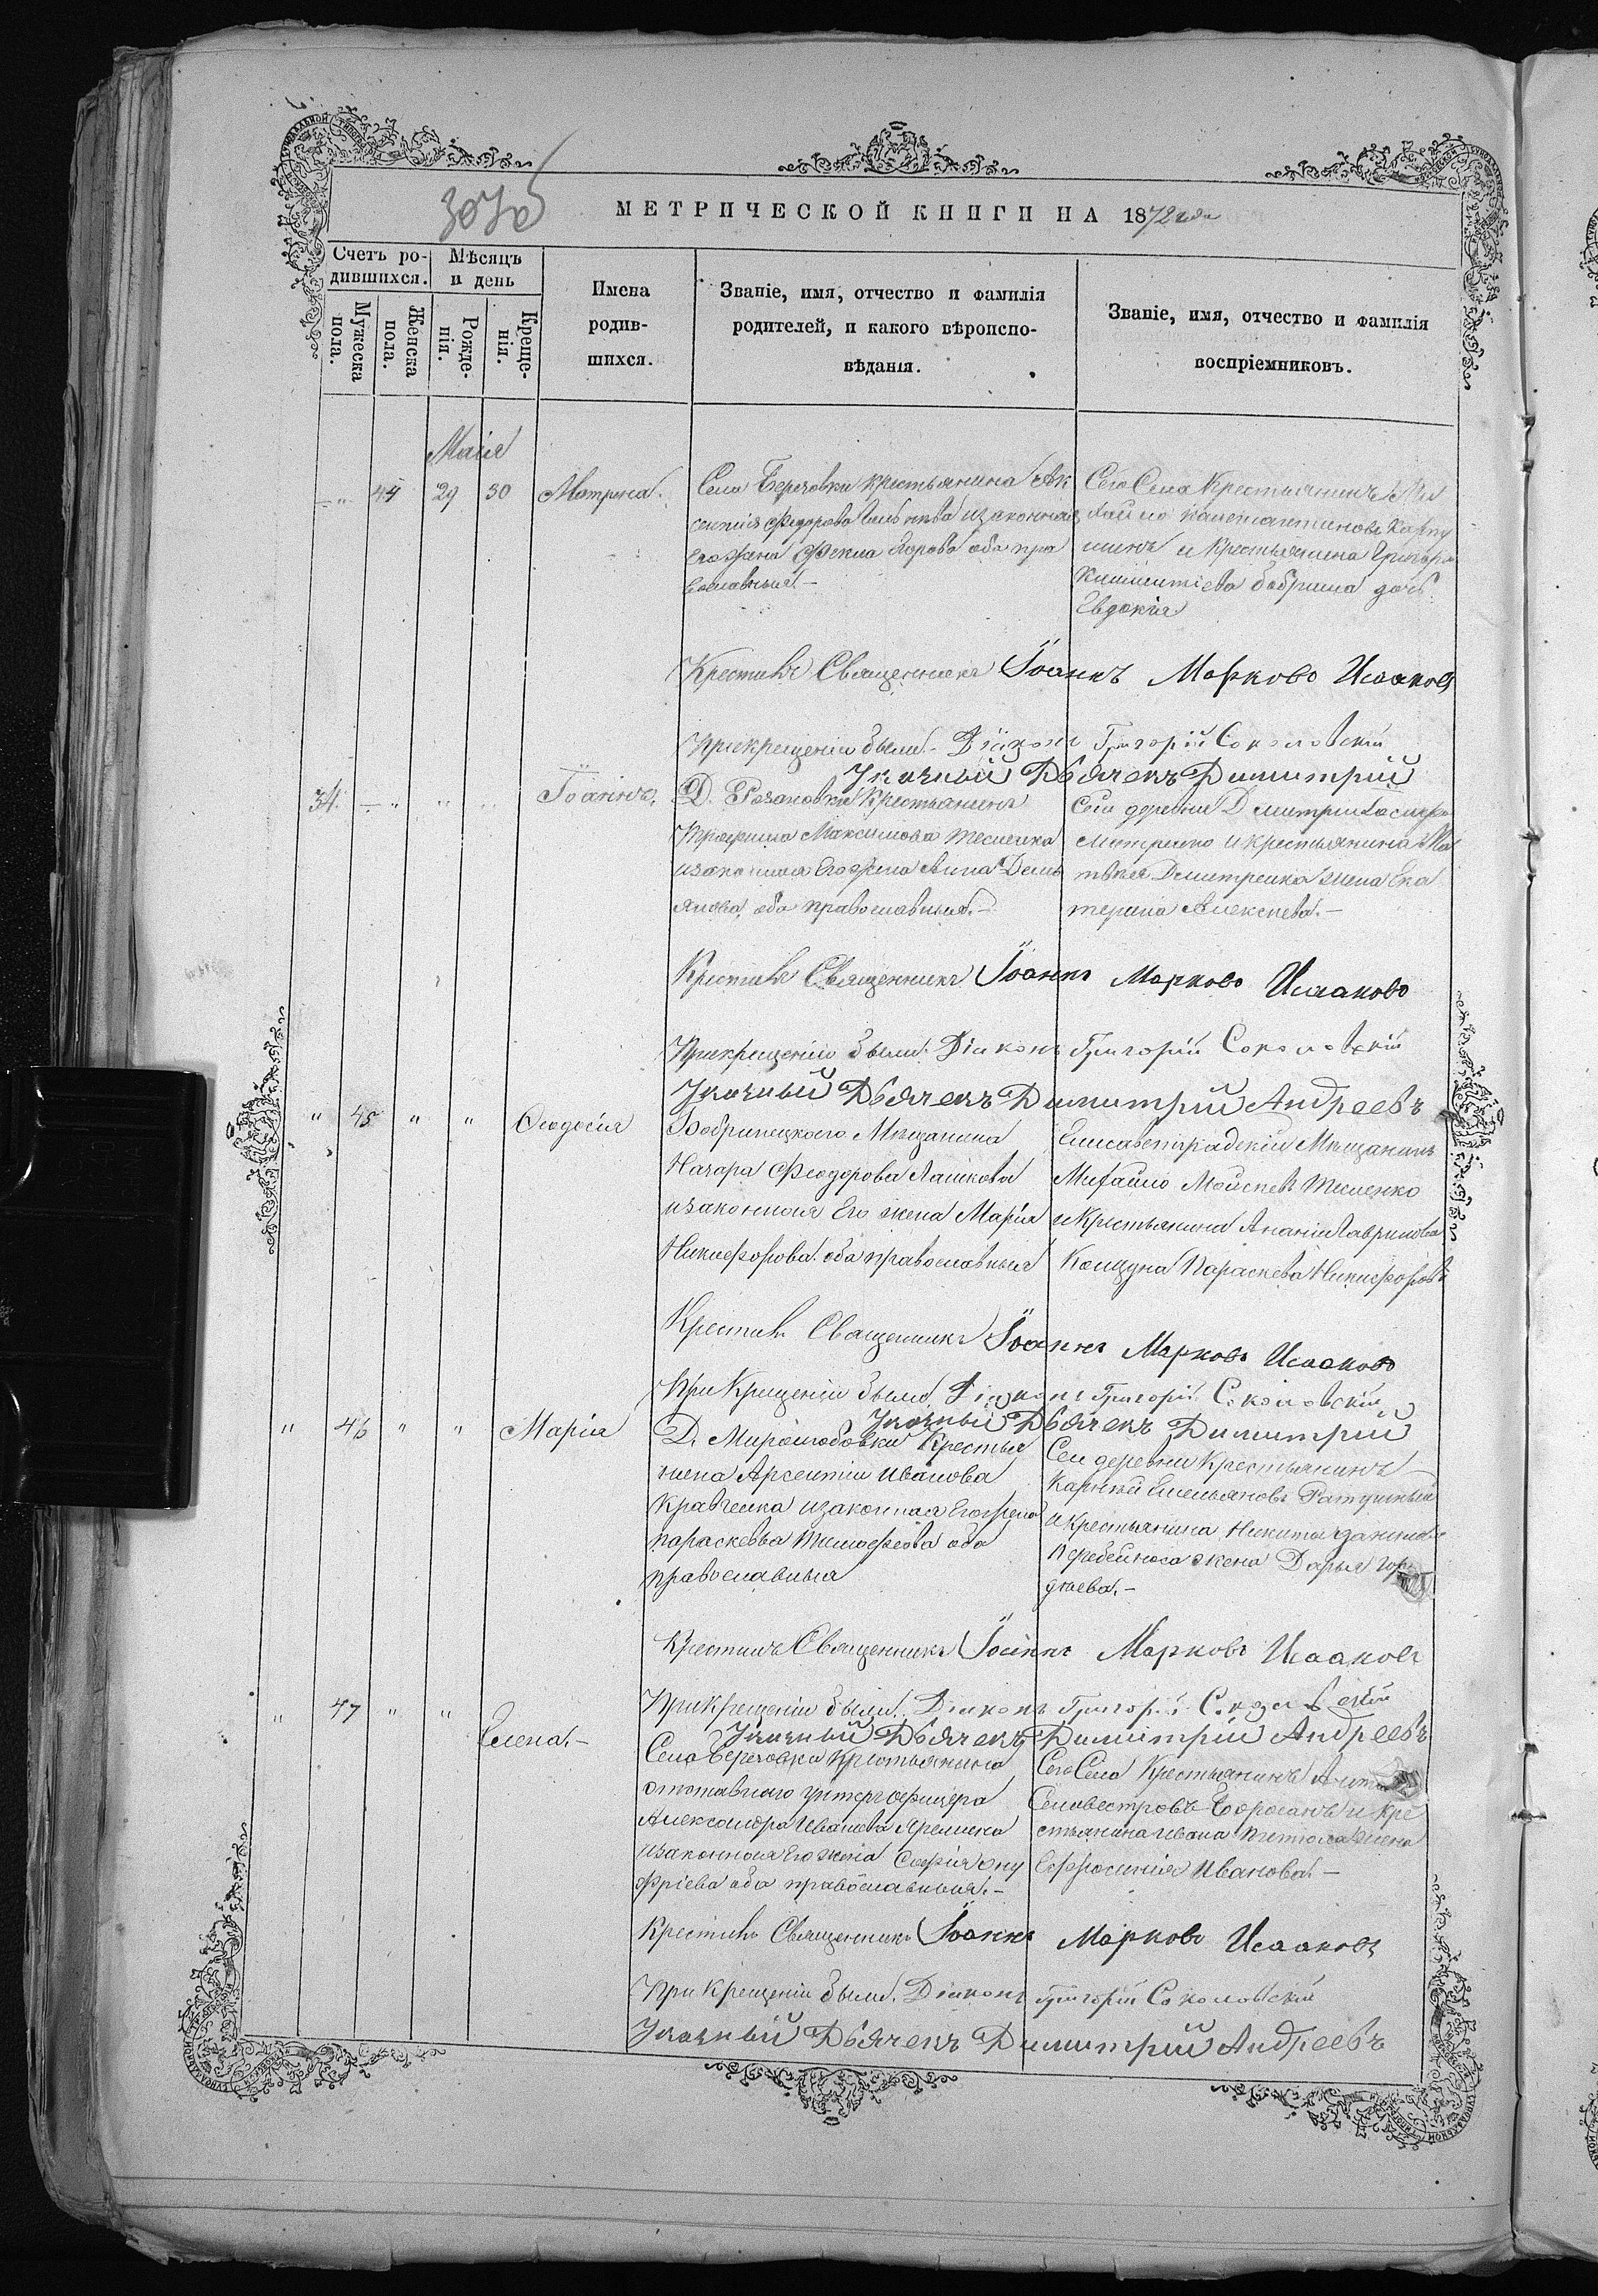 МЕТРИЧЕСКОЙ КНИГИ НА 1872 года
Счетъ ро-
дившихся.
Мѣсяцъ
и день
Мужеска
пола.
Женска
пола.
Рожде-
нія.
Креще-
нія.
Имена
родив-
шихся.
Званіе, имя, отчество и фамилія
родителей, и какого вѣроиспо-
вѣданія.
Званіе, имя, отчество и фамилія
воспріемниковъ.
Маія
44 29 30 Матрона.
Села Березовки крестьянина Ак
сентія Федорова и законная
его жена Фекла Егорова оба пра
вославныя. —
Сего Села Крестьянинъ Ми
хаило Константиновъ
и Крестьянина Григорія
дочь
Евдокія
Крестилъ Священникъ Іоаннъ Марковъ Исааковъ
При крещеніи были Діаконъ Григорій Соколовскій
Указный Дьячекъ Димитрій
34. — " " " Іоаннъ.
Д. Крестьянинъ
Максимова Тесленка
и законная Его жена Анна Демь
янова, оба православныя. —
Сей деревни Дмитрій
и крестьянина Ма
твея Дмитренка жена Ека
терина Алексеева. —
Крестилъ Священникъ Іоаннъ Марковъ Исааковъ
При крещеніи были Діаконъ Григорій Соколовскій
Указный Дьячекъ Димитрій Андреевъ
" 45 " " Феодосія
Бобринецкаго Мѣщанина
Назара Феодорова Лашкова
и законная Его жена Марія
Никифорова. оба православныя
Елисаветградскій Мѣщанинъ
Михайло Моисеевъ Тесленко
и Крестьянина Ананія Гаврилова
Параскева Никифорова
Крестилъ Священникъ Іоаннъ Марковъ Исааковъ
При Крещеніи были Діаконъ Григорій Соколовскій
Указный Дьячекъ Димитрій
" 46 " " Марія
Д. Миролюбовки Крестья
нина Арсентія Иванова
Кравченка и законная Его жена
Параскевва Тимофеева оба
православныя
Сей деревни Крестьянинъ
Карнѣй Емельяновъ Ратушный
и крестьянина Никиты
Перебейноса жена Дарья Гор
дѣева. —
Крестилъ Священникъ Іоаннъ Марковъ Исааковъ
При Крещеніи были. Діаконъ Григорій Соколовскій
Указный Дьячекъ Димитрій Андреевъ
" 47 " " Елена. —
Села Березовки Крестьянина
отставнаго унтеръ офицера
Александра Иванова Яременка
и законная Его жена Софія Ону
фріева оба православныя. —
Сего Села Крестьянинъ
Селивестровъ и кре
стьянина Ивана жена
Ефросинія Иванова. —
Крестилъ Священникъ Іоаннъ Марковъ Исааковъ
При Крещеніи были. Діаконъ Григорій Соколовскій
Указный Дьячекъ Димитрій Андреевъ